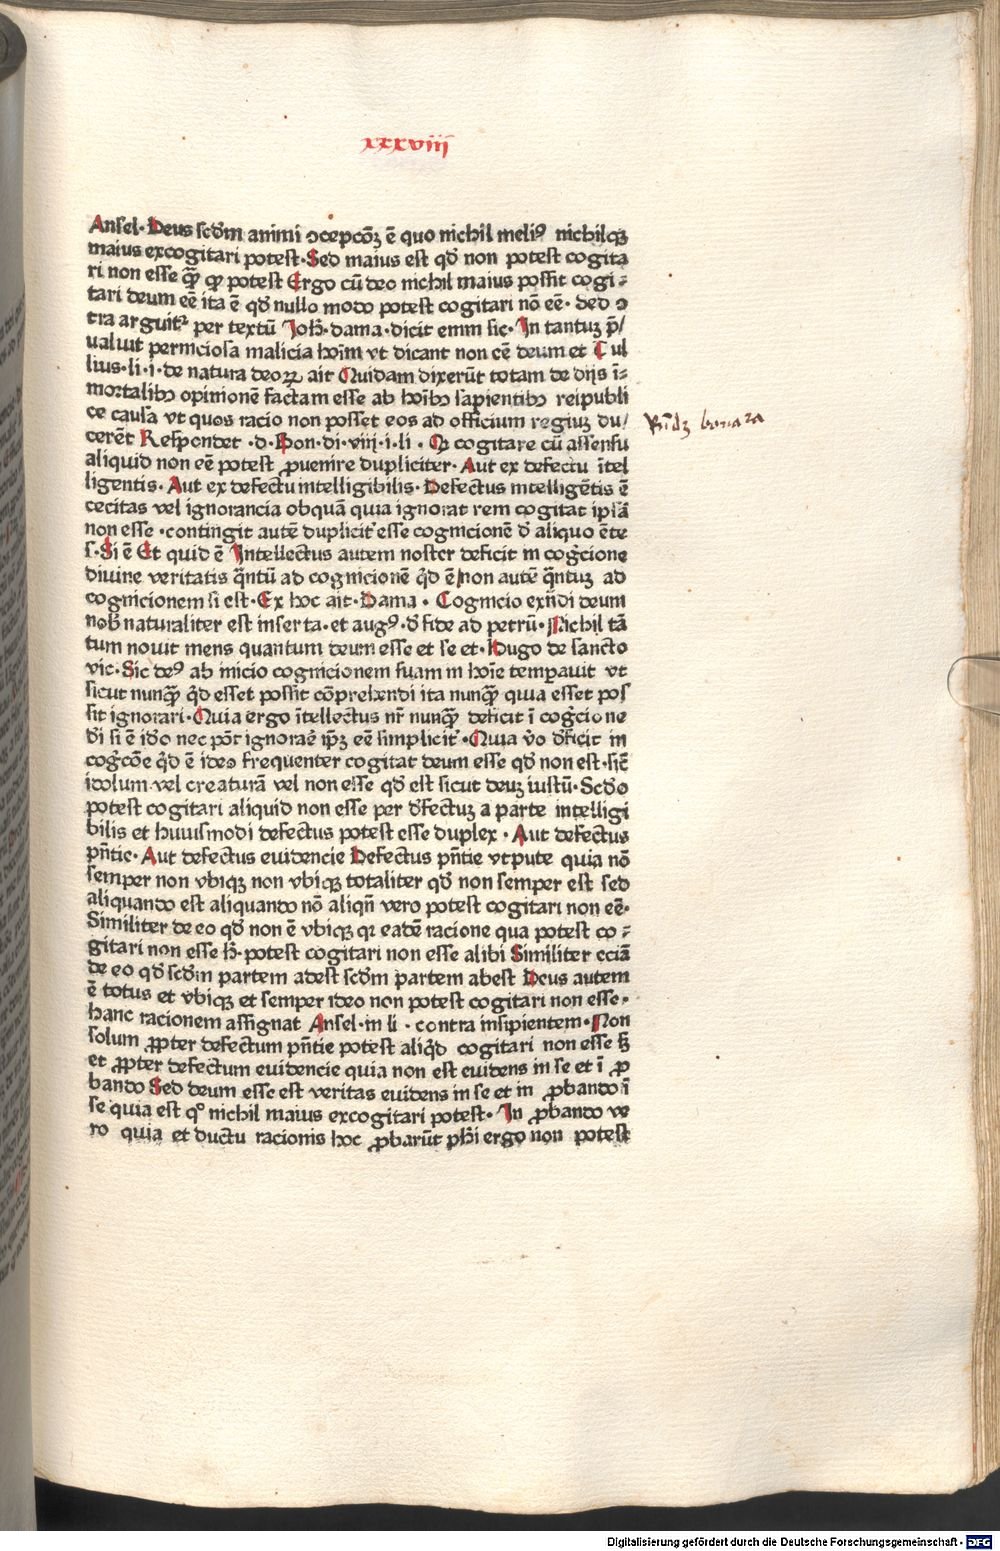 xxxviii
Ansel· Deus scd̓m animi ɔcepcōꝫ ē quo nichil meliꝰ nichilqꝫ
maius excogitari potest· Sed maius est qd̓ non potest cogita
ri non esse qꝫ̄ qꝫ potest Ergo cū deo nichil maius possit cogi⸗
tari deum eē ita ē qd̓ nullo modo potest cogitari nō eē· Sed ɔ
tra arguit᷑ per textū Joh̄· dama· dicit enim sic· In tantuꝫ p̄/
ualuit perniciosa malicia hoīm vt dicant non eē deum et Tul
lius· li· i· de natura deoꝝ ait Quidam dixerūt totam de dijs ī⸗
mortalibꝫ opinionē factam esse ab hoībꝫ sapientibꝫ reipubli
ce causa vt quos racio non posset eos ad officium regiuꝫ du/
cerēt Respondet ·d· Bon· di· viij· i· li · Qꝫ cogitare cū assensu
aliquid non eē potest ꝓuenire dupliciter· Aut ex defectu ītel
ligentis· Aut ex defectu intelligibilis· Defectus intelligētis ē
cecitas vel ignorancia obquā quia ignorat rem cogitat ipsā
non esse ·contingit autē duplicit᷑ esse cognicionē d̓ aliquo ēte
s· Si ē Et quid ē Intellectus autem noster deficit in cog̓cione
diuine veritatis q̄ntū ad cognicionē q̓d ē non autē q̄ntuꝫ ad
cognicionem si est· Ex hoc ait· Dama · Cognicio exn̄di deum
nob̄ naturaliter est inserta· et augꝰ· d̓ fide ad petrū· Nichil tā
tum nouit mens quantum deum esse et se et· Hugo de sancto
vic· Sic deꝰ ab inicio cognicionem suam in hoīe temperauit vt
sicut nunqꝫ̄ q̓d esset possit cōprehendi ita nunqꝫ̄ quia esset pos
sit ignorari· Quia ergo ītellectus nr̄ nunqꝫ̄ deficit ī cog̓cione
dī si ē iđo nec pōt ignorare ip̄ꝫ eē simplicit᷑· Quia v̓o d̓ficit in
cog̓cōe q̓d ē ideo frequenter cogitat deum esse qd̓ non est· sic̄
idolum· vel creaturā vel non esse qd̓ est sicut deuꝫ iustū· Scd̓o
potest cogitari aliquid non esse per d̓fectuꝫ a parte intelligi
bilis et huiusmodi defectus potest esse duplex · Aut defectus
pn̄tie· Aut defectus euidencie Defectus pn̄tie vtpute quia nō
semper non vbiqꝫ non vbiqꝫ totaliter qd̓ non semper est sed
aliquando est aliquando nō aliqn̄ vero potest cogitari non eē·
Similiter de eo qd̓ non ē vbiqꝫ qꝛ eadē racione qua potest co⸗
gitari non esse h̄· potest cogitari non esse alibi Similiter eciā
de eo qd̓ scd̓m partem adest scd̓m partem abest Deus autem
ē totus et vbiqꝫ et semper ideo non potest cogitari non esse·
hanc racionem assignat Ansel· in li · contra insipientem· Non
solum ꝓpter defectum pn̄tie potest aliq̓d cogitari non esse sꝫ
et ꝓpter defectum euidencie quia non est euidens in se et ī ꝓ
bando Sed deum esse est veritas euidens in se et in ꝓbando ī
se quia est qº nichil maius excogitari potest· In ꝓbando ve
ro quia et ductu racionis hoc ꝓbarūt ph̄i ergo non potest
Digitalisierung gefördert durch die Deutsche Forschungsgemeinschaft - DFG